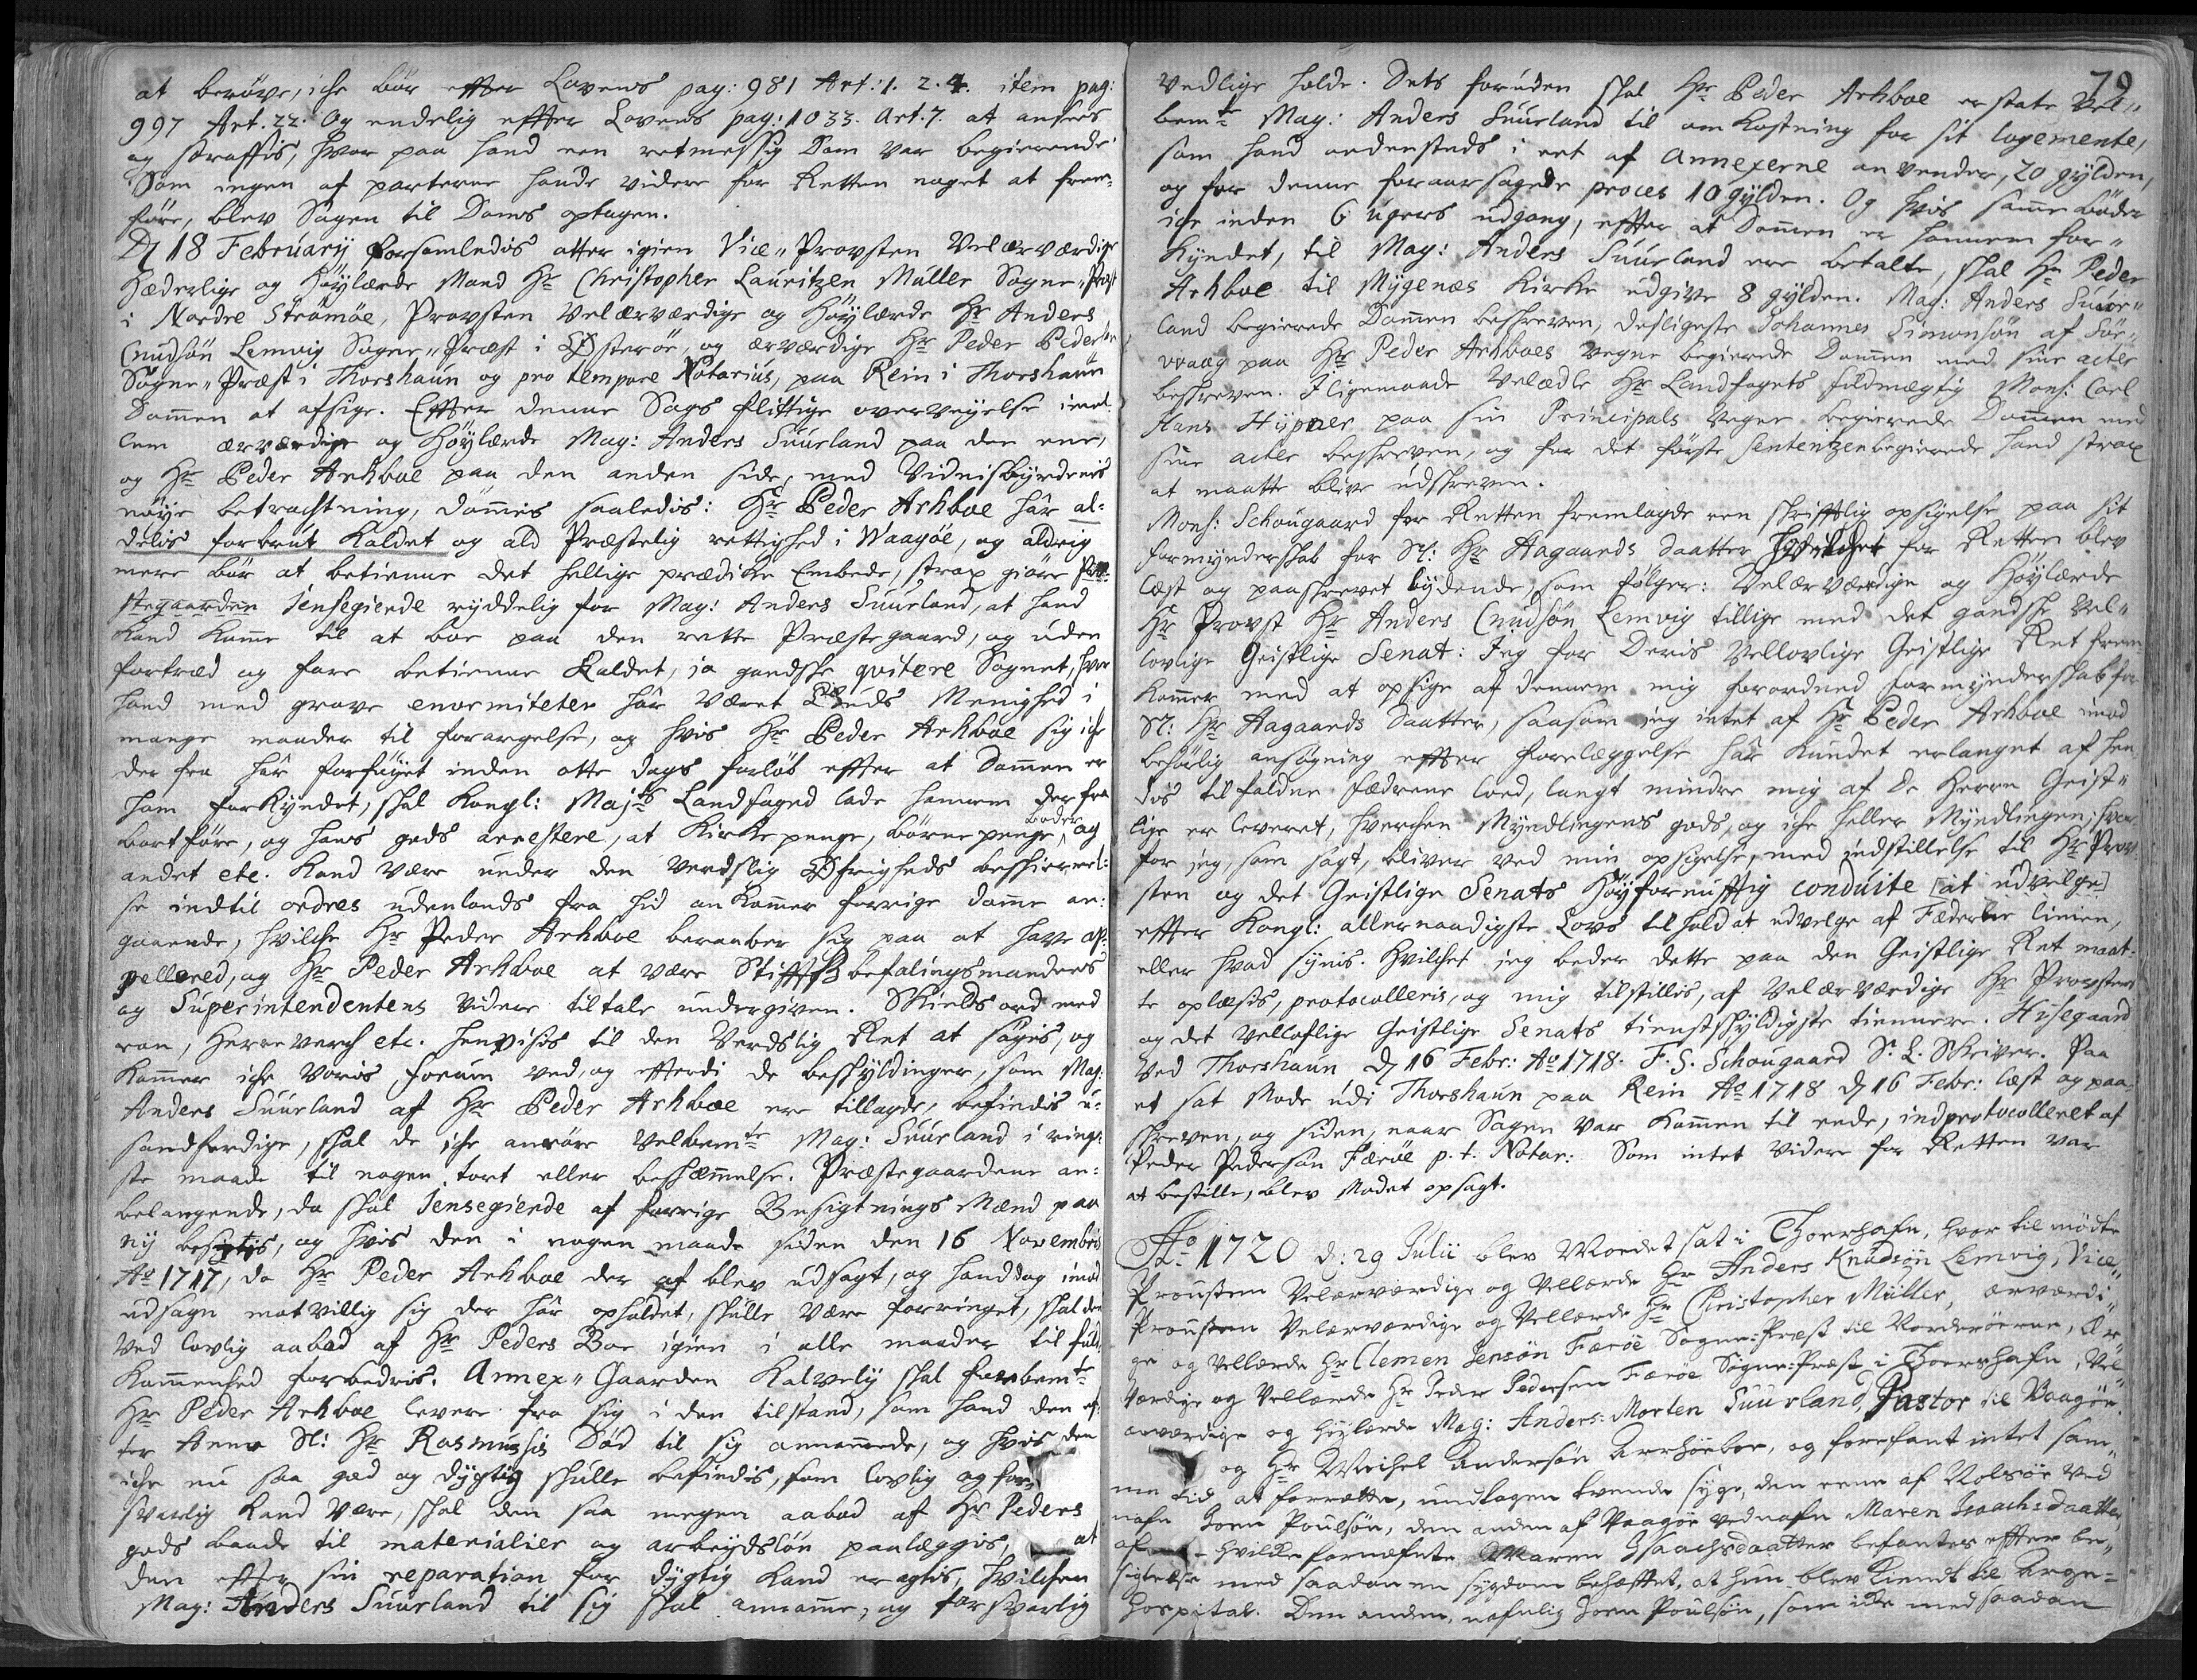 at berøve, iche bør effter Lovens pag: 981 Art: 1. 2. 4. item pag:
997 Art. 22. Og endelig effter Lovens pag: 1033. Art. 7. at ansees
og straffis, hvor paa hand een retmessig Dom var begierende.
Som ingen af parterne hande videre for Retten noget at frem¬
føre, blev Sagen til Doms optagen.
D 18 Februarij forsamledis atter igien Vice„Provsten Velærværdige
Hæderlige og Høylærde Mand Hr Christopher Lauritzen Müller Sogne„Præst
i Nordre Strømøe, Provsten Velærværdige og Høylærde Hr Anders
Cnudsøn Lemvig Sogne„Præst i Østerøe, og ærværdige Hr Peder Peders:
Sogne„Præst i Thorshaún og pro tempore Notariús, paa Rein i Thorshaún
Dommen at afsige. Effter denne Sags flittige overveyelse imel¬
lem ærværdige og Høylærde Mag: Anders Súúrland paa den ene,
og Hr Peder Arhboe paa den anden side, med Vidnisbyrdenis
nøye betrachtning, dømmis saaledis: Hr Peder Arhboe hâr al¬
delis forbrút Kaldet og ald Præstelig rettighed i Waagöe, og aldrig
mere bør at betienne det hellige prædike Embede, strax giøre Præ¬
stegaarden Jensegierde ryddelig for Mag: Anders Súúrland, at hand
kand komme til at boe paa den rette Præstegaard, og úden
fortræd og fare betienne Kaldet, ja gandske qvitere Sognet, hvor
hand med grove enormiteter hâr været Gúds Menighed i
mange maader til forargelse, og hvis Hr Peder Arhboe sig iche
der fra hâr forføyet inden otte dags forløb effter at Dommen er
ham forkyndet, skal Kongl: Majts Landfoged lade hannem der fra
bortføre, og hans gods arrestere, at Kirke penge, børne penge, bøder og
andet etc. Kand være únder den Verdslig Øfrigheds beskiermel¬
se indtil ordres údenlands fra hid ankommer forrige domme an¬
gaaende, hvilche Hr Peder Arhboe beraaber sig paa at have ap¬
pellered, og Hr Peder Arhboe at være Stifftsbefalingsmandens
og Superintendentens videre tiltale úndergiven. Skields ord med
ran, Herreverch etc. henvisis til den Verdslig Ret at søgis, og
kommer iche voris forúm ved, og effterdi de beskyldinger, som Mag:
Anders Súúrland af Hr Peder Arhboe ere tillagde, befindis ú¬
sandferdige, skal de iche anrøre Velbemte Mag: Súúrland i ringe¬
ste maade til nogen tort eller beskæmmelse. Præstegaardene an¬
belangende, da skal Jensegierde af forrige Besigtnings Mænd paa
nÿ besigtis, og hvis den i nogen maade siden den 16 Novembris
Ao 1717, da Hr Peder Arhboe der af blev údsagt, og hand dog imod
údsagn motvillig sig der hâr opholdet, skúlle være forringet, skal den
ved lovlig aabod af Hr Peders Boe igien i alle maader til fúld¬
kommenhed forbedris. Annex„Gaarden Kalvelÿ skal forbemte
Hr Peder Arhboe levere fra sig i den tilstand, som hand den ef¬
ter Anno Sl: Hr Rasmússis Død til sig annammede, og hvis den
iche nu saa god og dygtig skulle befindis, som lovlig og for¬
svarlig kand være, skal den saa megen aabod af Hr Peders
gods baade til materialier og arbeydsløn paalæggis, at
den effter sin reparation for dygtig kand eragtis, hvilchen
Mag: Anders Súúrland til sig skal annamme, og forsvarlig
79
vedlige holde. Dets forúden skal Hr Peder Arhboe erstate Vel„
bemte Mag: Anders Súúrland til omkostning for sit logemente,
som hand andensteds i eet af Annexerne anvender, 20 gÿlden,
og for denne foraarsagede proces 10 gÿlden. Og hvis samme bøder
iche inden 6 úgers údgang, effter at Dommen er hannem for„
kyndet, til Mag: Anders Súúrland ere betalte, skal Hr Peder
Arhboe til Mÿgenæs Kirke údgive 8 gÿlden. Mag: Anders Súúr„
land begierede Dommen beskreven, desligeste Johannes Simonsøn af Sør„
vaag paa Hr Peder Arhboes vegne begierede Dommen med sine acter
beskreven. Iligemaade Velædle Hr Landfogets fúldmægtig Mons: Carl
Hans Hÿpner paa sin Principals vegne begierede Dommen med
sine acter beskreven, og for det første sententzen begierede hand strax
at maatte blive údskreven.
Mons: Schoúgaard for Retten fremlagde een skrifftlig opsigelse paa sit
formynderskab for Sl: Hr Aagaards Daatter hvilchet for Retten blev
læst og paaskrevet lÿdende som følger: Velærværdige og Høylærde
Hr Provst Hr Anders Cnudsøn Lemvig tillige med det gandske vel„
lovlige Geistlige Senat: Jeg for Deris Vellovlige Geistlige Ret frem
kommer med at opsige af dennem mig forordned formynderskab for
Sl: Hr Aagaards Daatter, saasom jeg intet af Hr Peder Arhboe imod
behørlig ansøgning effter forelæggelse hâr kúndet erlanget af hen¬
dis tilfaldne fædrene lod, langt mindre mig af de Herrn Geist„
lige er leveret, hverchen Myndlingens gods, og iche heller Myndlingen; hvor
for jeg, som sagt, bliver ved min opsigelse, med indstillelse til Hr Prov¬
sten og det Geistlige Senats Høyfornúfftig condúite [at údvelge]
effter Kongl: allernaadigste Lovs tilhold at údvelge af Fæderne linien,
eller hvad sÿnis. Hvilchet jeg beder dette paa den Geistlige Ret maat¬
te oplæsis, protocolleris, og mig tilstillis, af Velærværdige Hr Provsten
og det Velloflige Geistlige Senats tienstskÿldigste tiennere. Húsegaard
ved Thorshaún d 16 Febr: Ao 1718. F. S. Schoúgaard S. L. Skriver. Paa
et sat Mode údi Thorshaún paa Rein Ao 1718 d 16 Febr: læst og paa¬
skreven, og siden, naar Sagen var kommen til ende, indprotocolleret af
Peder Pedersøn Færöe p. t. Notar: Som intet videre for Retten var
at bestille, blev Modet opsagt.
Ao 1720 d: 29 Julii blev Moedet sat i Thorshafn, hvor til mødte
Proústen Velærværdige og Vellærde Hr Anders Knudsøn Lemvig, Vice„
Proústen Velærværdige og Vellærde Hr Christopher Müller, ærværdi„
ge og Vellærde Hr Clemen Jensøn Færöe Sogne=Præst til Norderöerne, Ær„
værdige og Vellærde Hr Peder Pedersen Færöe Sogne=Præst i Thorshafn, Vel„
ærværdige og Høylærde Mag: Anders Morten Suurland, Pastor til Vaagöe,
og Hr Michel Andersøn Arrhöeboe, og forefant intet sam„
me tid at forrætte, undtagen tvende syge, den eene af Nolsöe ved
nafn Joen Poulsøn, den anden af Vaagöe ved nafn Maren Isaachsdaatter,
af hvilke fornæfnte Maren Isaachsdaatter befantes effter be„
sigtelse med saadan en sygdom behæfftet, at hun blev kiendt til Arge=
hospital. Den anden, nafnlig Joen Poulsøn, som icke med saadan